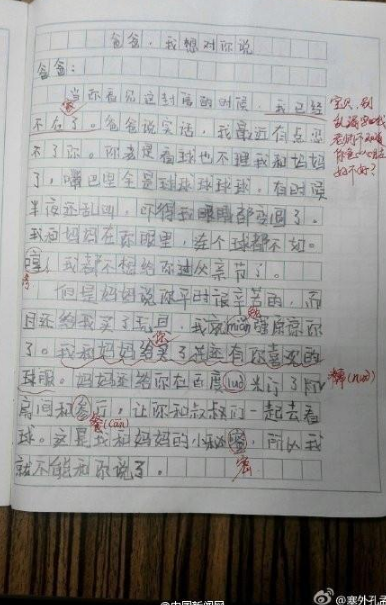 爸爸,我想对你说
爸爸:
当你看见这封信的时候,我已经
不在了。爸爸说实话,我最近有点忍
不了你。你老是看球也不理我和妈妈
了,嘴巴里全是球球球球球,有时候
半夜还乱叫,吓得我眼睛都变圆了。
我和妈妈在你眼里,连个球都不如。
哼!我都不想给你过父亲节了。
但是妈妈说你平时很辛苦的,而
且还给我买了玩具,我就miǎn强原谅你
了。我和妈妈给买了花还有你喜欢的
球服。妈妈还给你在百度luò米订了
房间和参厅,让你和叔叔们一起去看
球。这是我和妈妈的小秘密,所以我
就不能和你说了。
宝贝,别
糯(nuò)
餐(cān)
密
@中国新闻网
@塞外孔孟